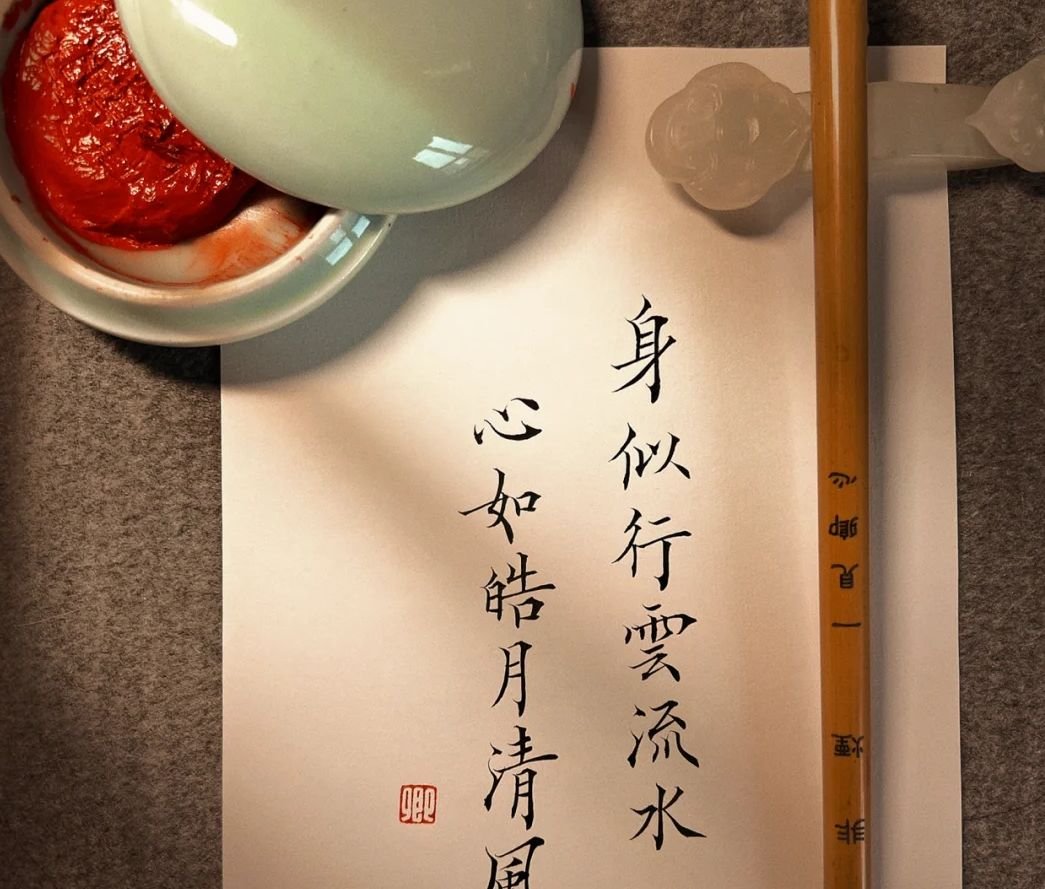 身似行雲流水
心如皓月清風
卿
心卿見一
煙非